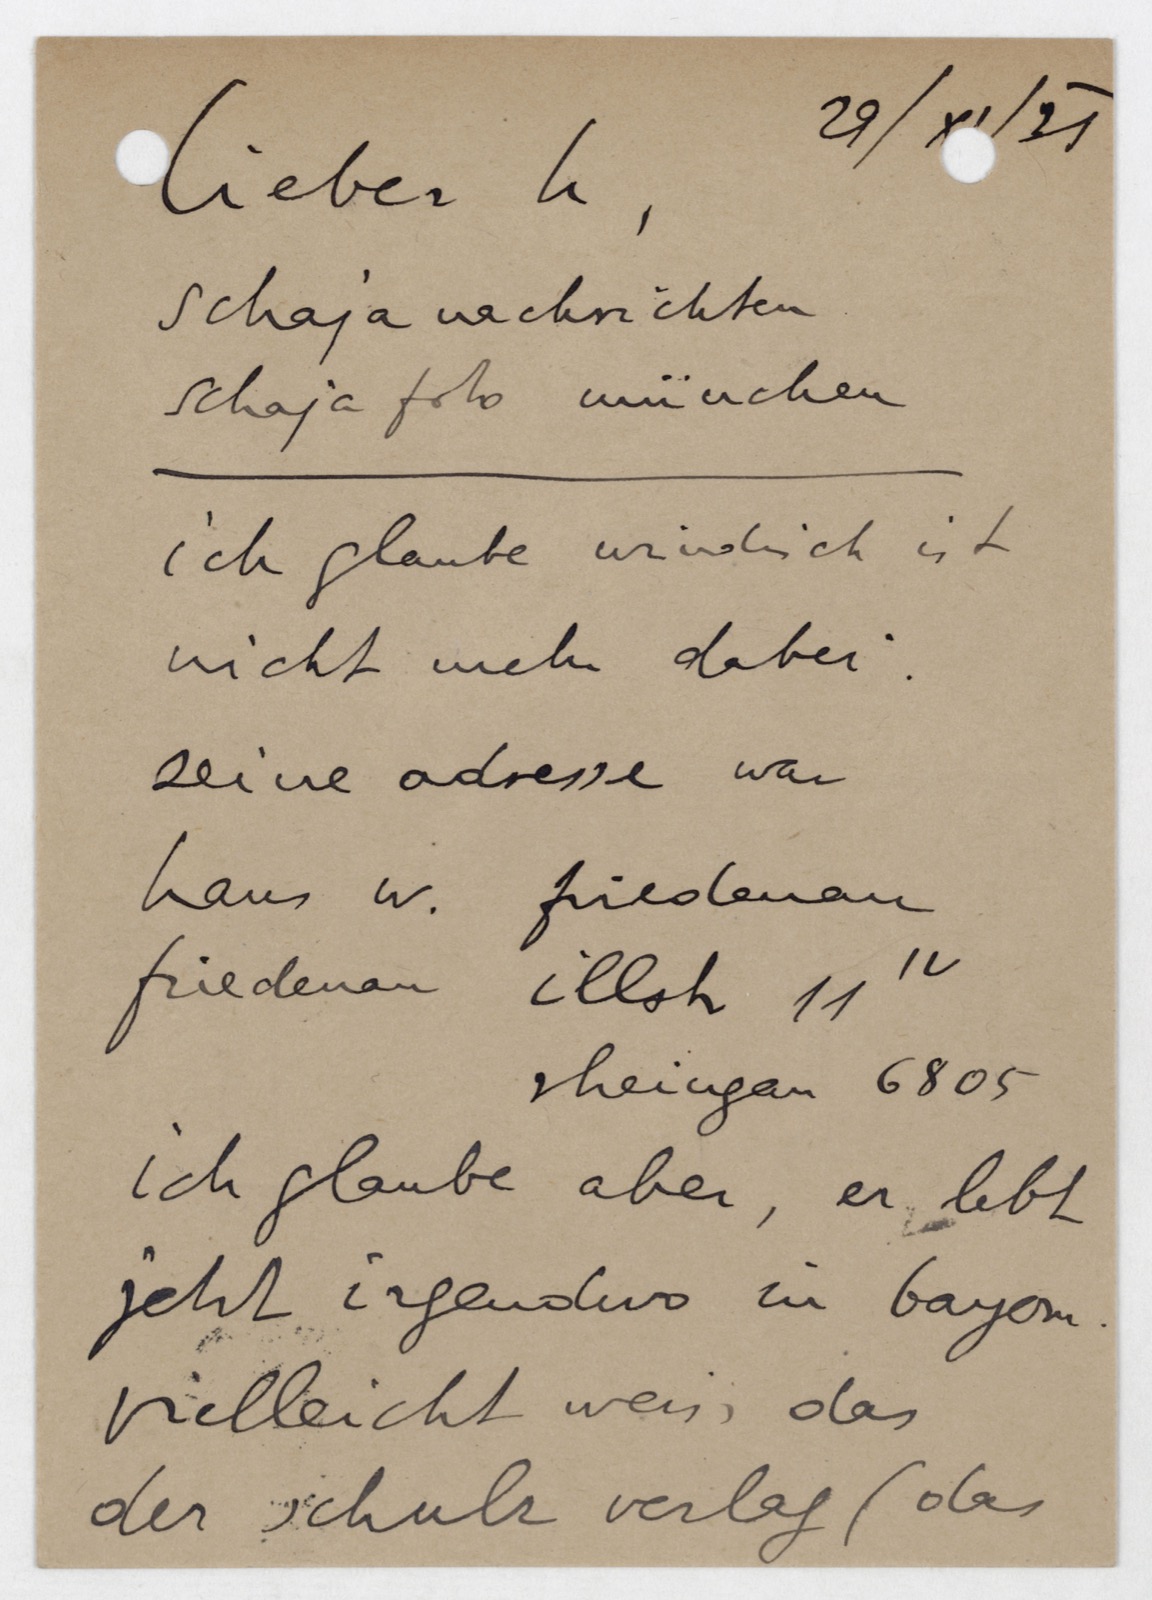 29/XI/31
lieber h,
schaja nachrichten
schaja foto münchen
ich glaube windisch ist
nicht mehr dabei.
seine adresse war
hans w. friedenau
friedenau illstr 11 IV
rheingau 6805
ich glaube aber, er lebt
jetzt irgendwo in bayern.
vielleicht weiss das
der schulz verlag (das